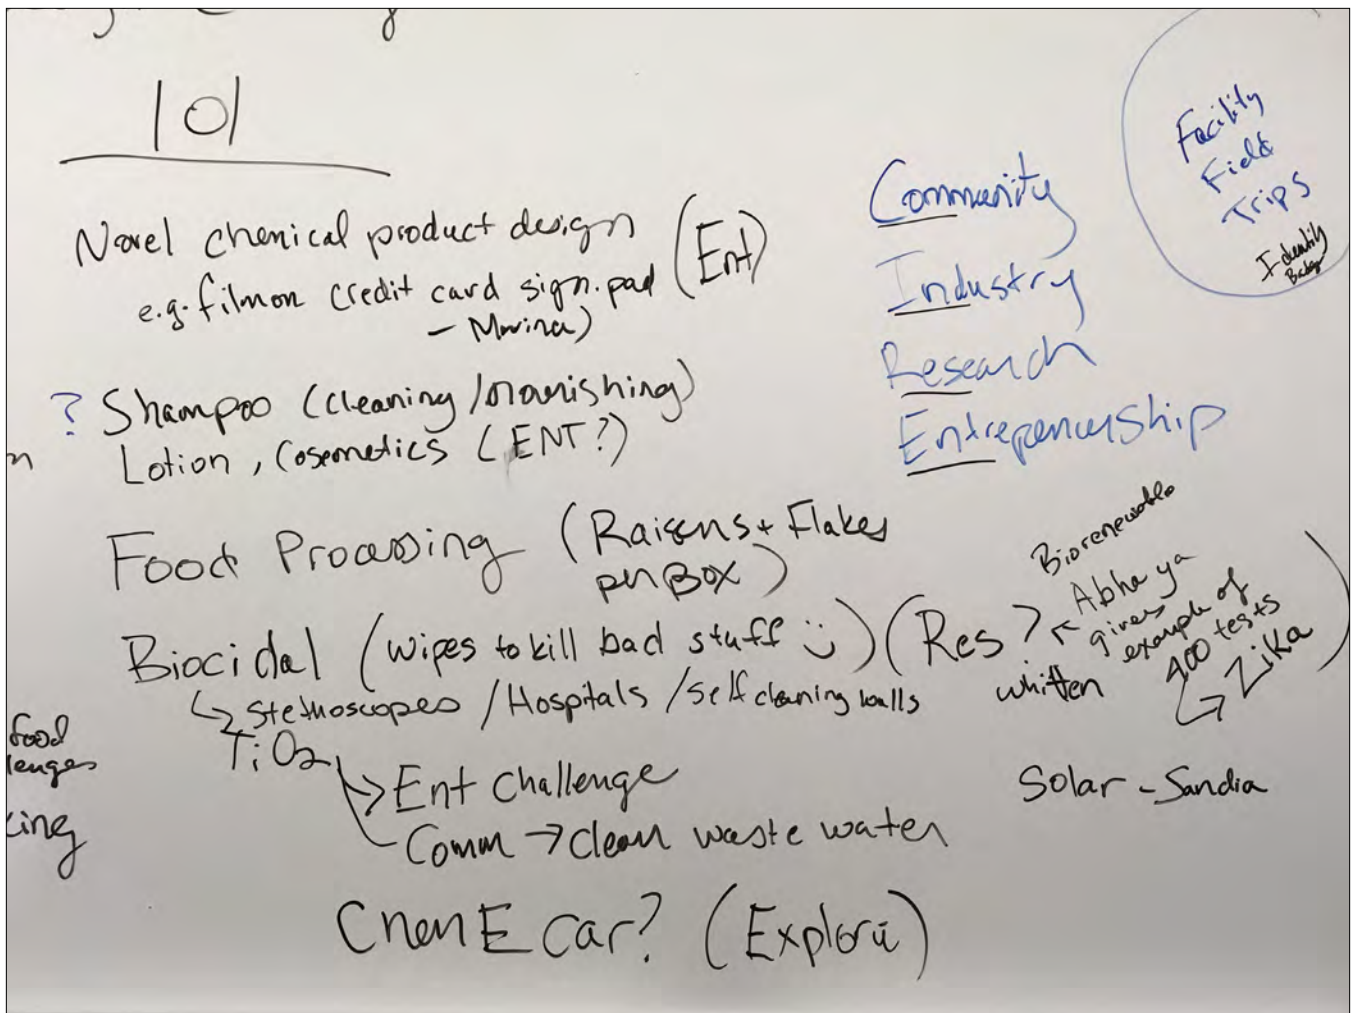 101
Novel chemical product design (Ent)
e.g. film on credit card sign. pad
- Marina)
? Shampoo (cleaning / nourishing)
Lotion, Cosemetics (ENT?)
Food Processing (Raisens + Flakes
per Box)
Biocidal (wipes to kill bad stuff ü) (Res?
↳ Stethoscopes / Hospitals / Self cleaning walls
TiO2
→ Ent Challenge
Comm → Clean waste water
ChemE Car? (Explora)
Community
Industry
Research
Entrepenuership
Facility
Field
Trips
Identity
Badge
Biorenewable
← Abhaya
gives
example of
400 tests
↳ Zika
)
whitten
Solar - Sandia
food
lenges
king
n